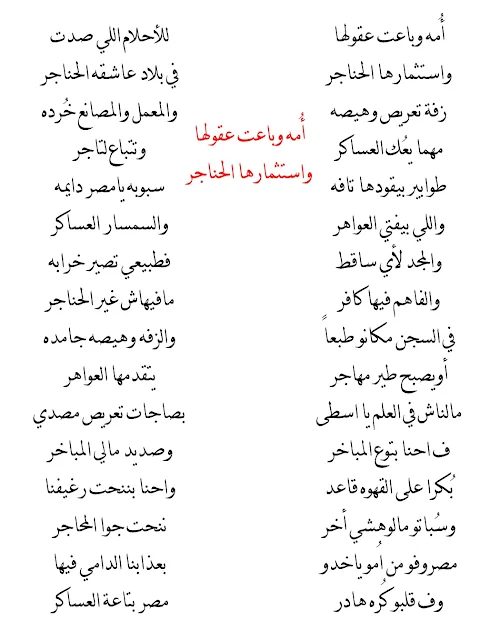 أُمه وباعت عقولها
واستثمارها الحناجر
زفة تعريص وهيصه
مهما يعُك العساكر
طوابير بيقودها تافه
واللي بيفتي العواهر
والمجد لأي ساقط
والفاهم فيها كافر
في السجن مكانو طبعاً
أويصبح طير مهاجر
مالناش في العلم يا اسطى
ف احنا بتوع المباخر
بُكرا على القهوه قاعد
وسُباتو مالوهشي أخر
مصروفو من أمو ياخدو
وف قلبو كُره هادر
أُمه وباعت عقولها
واستثمارها الحناجر
للأحلام اللي صدت
في بلاد عاشقه الحناجر
والمعمل والمصانع خُرده
وتتباع لتاجر
سبوبه يا مصر دايمه
والسمسار العساكر
فطبيعي تصير خرابه
مافيهاش غير الحناجر
والزفه وهيصه جامده
يتقدمها العواهر
بصاجات تعريص مصدي
وصديد مالي المباخر
واحنا بننحت رغيفنا
ننحت جوا المحاجر
بعذابنا الدامي فيها
مصر بتاعة العساكر